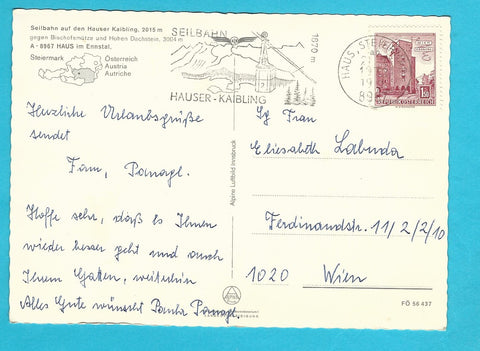 Seilbahn auf den Hauser Kaibling, 2015 m
gegen Bischofsmütze und Hohen Dachstein, 3004 m
A - 8967 HAUS im Ennstal.
Steiermark
Österreich
Austria
Autriche
SEILBAHN
1870 m
HAUSER-KAIBLING
HAUS, STEIERM
REPUBLIK ÖSTERREICH
Herzliche Urlaubsgrüße
sendet
Fam. Panagl.
Hoffe sehr, daß es Ihnen
wieder besser geht und auch
Ihrem Gatten, weiterhin
Alles Gute wünscht Panagl.
Alpine Luftbild Innsbruck
Sg Frau
Elisabeth Labuda
Ferdinandstr. 11/2/2/10
1020 Wien
FÖ 56 437